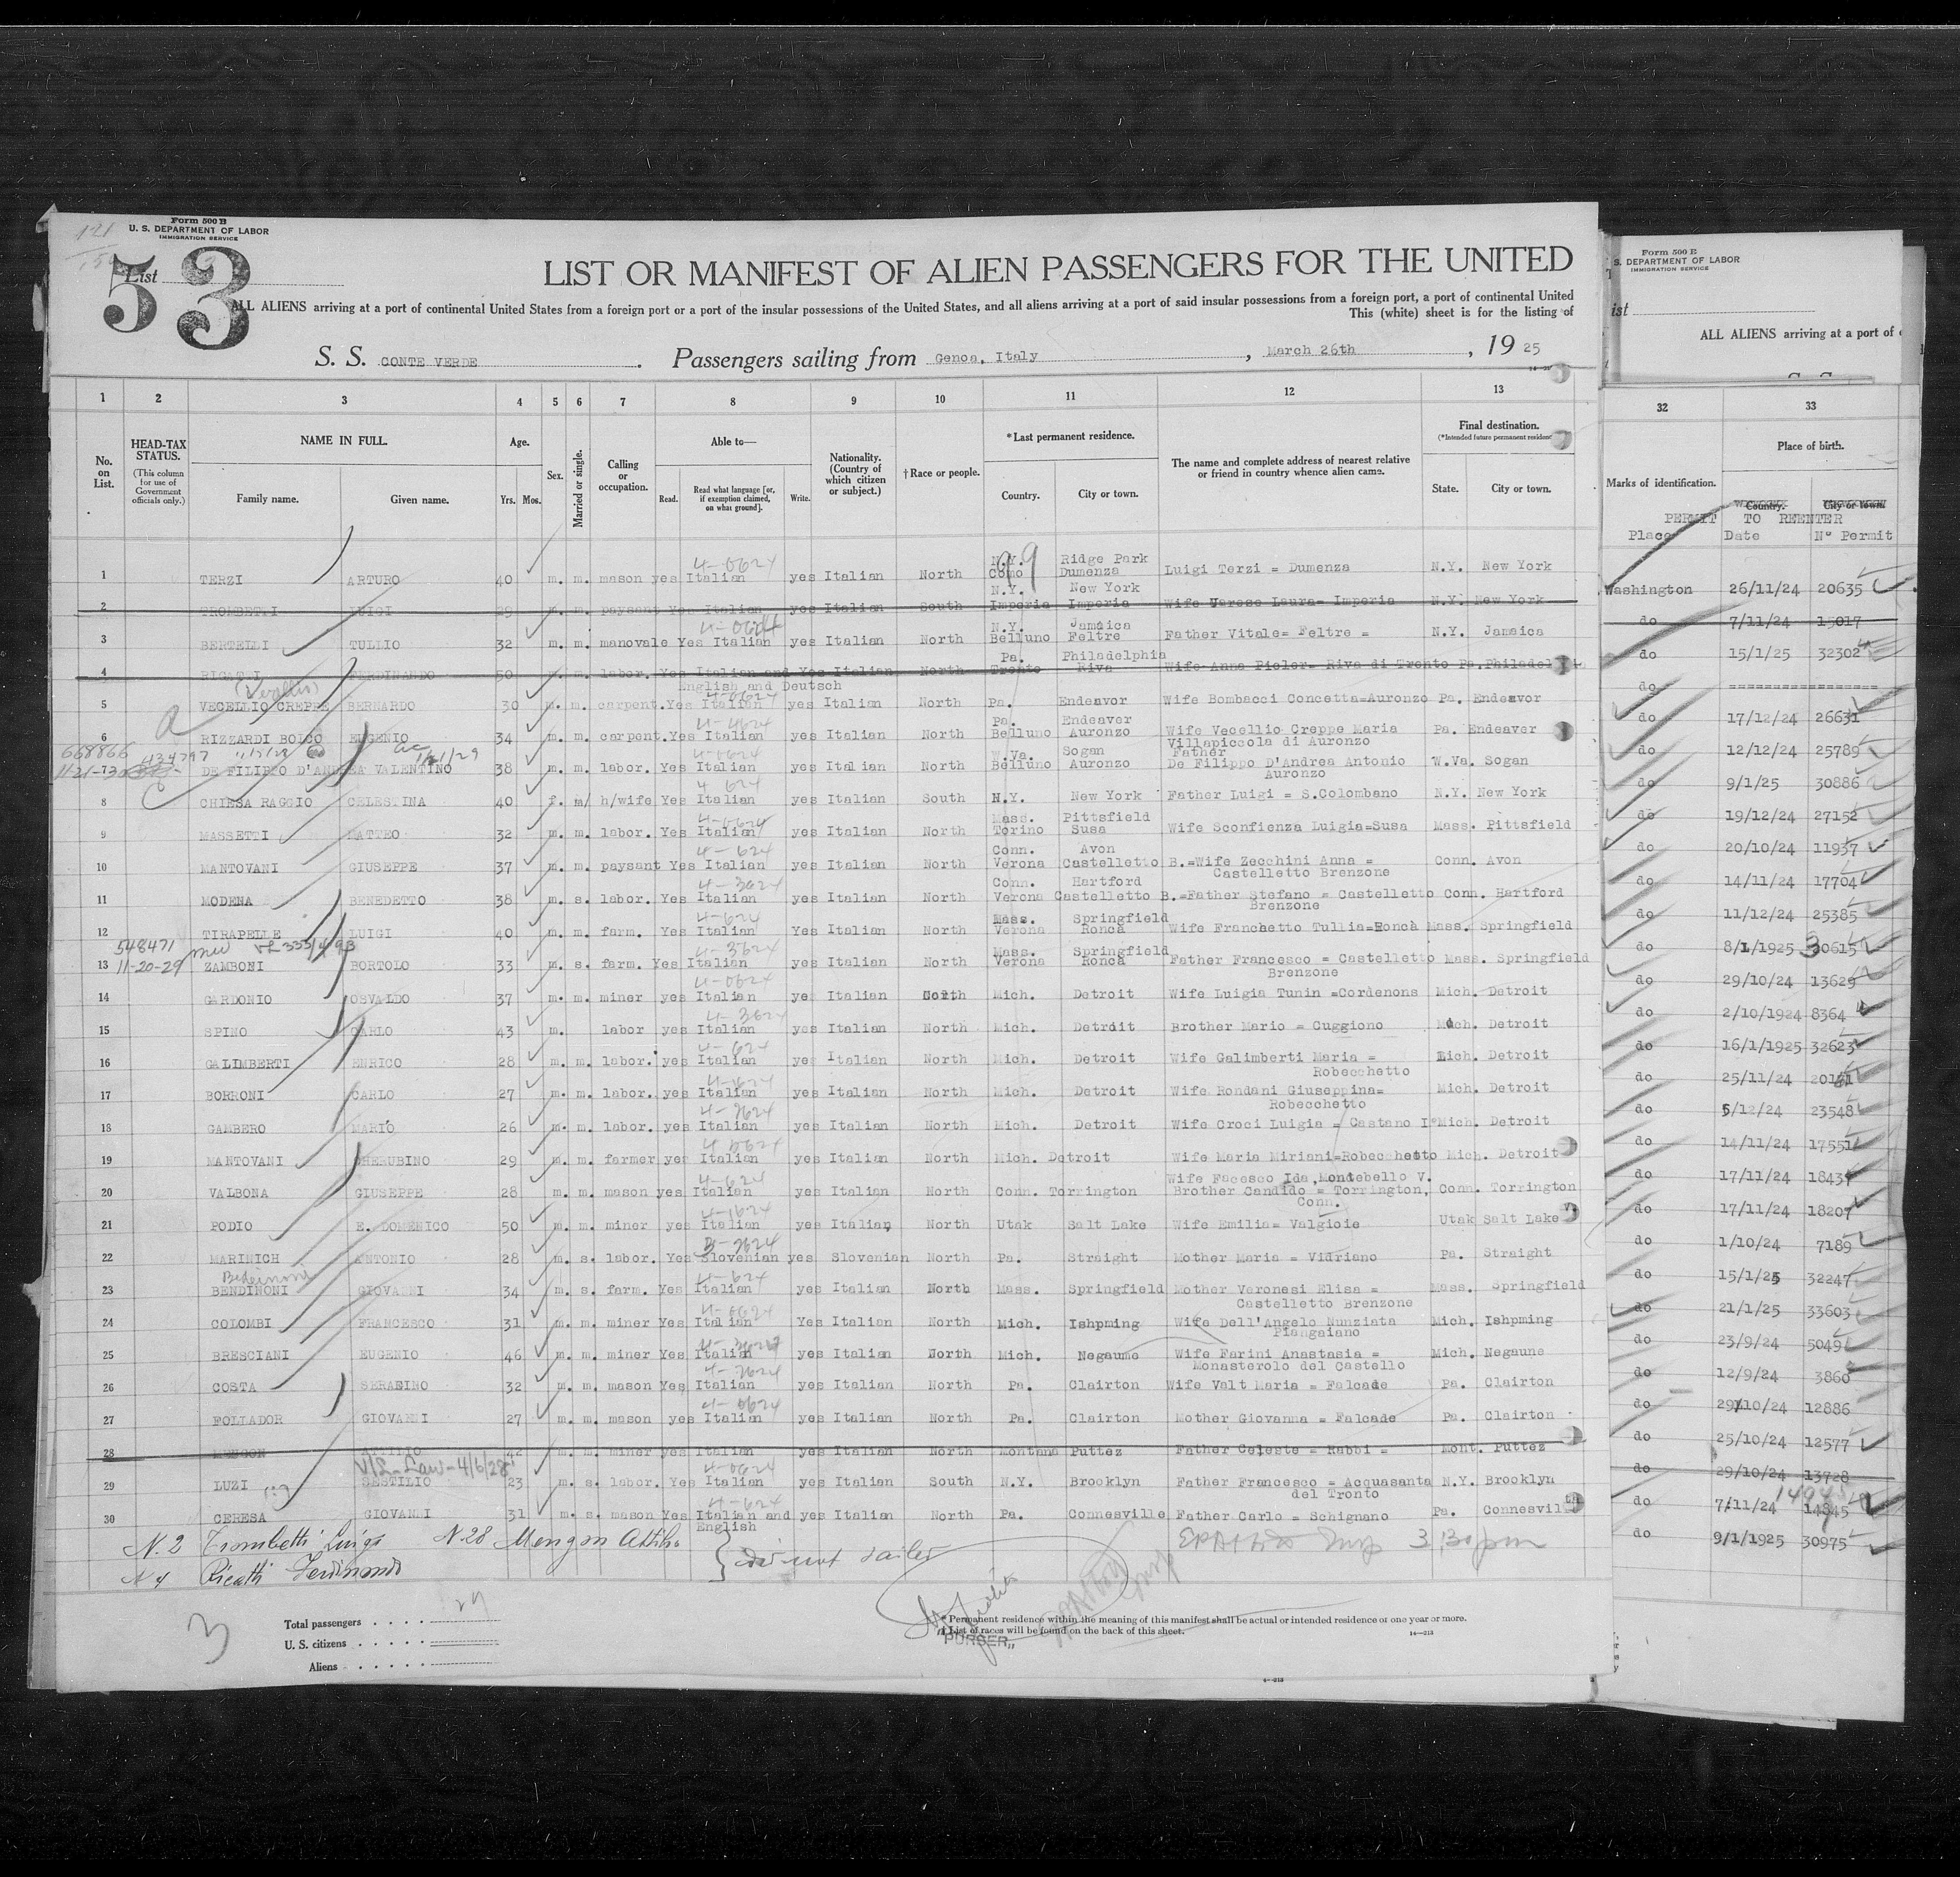 Form 500 B
U. S. DEPARTMENT OF LABOR
IMMIGRATION SERVICE
List
53
LIST OR MANIFEST OF ALIEN PASSENGERS FOR THE UNITED
ALL ALIENS arriving at a port of continental United States from a foreign port or a port of the insular possessions of the United States, and all aliens arriving at a port of said insular possessions from a foreign port, a port of continental United
This (white) sheet is for the listing of
S. S. CONTE VERDE . Passengers sailing from Genoa, Italy , March 26th , 19 25
1 2 3 4 5 6 7 8 9 10 11 12 13
No. on List.
HEAD-TAX STATUS.
(This column for use of Government officials only.)
NAME IN FULL.
Family name. Given name.
Age.
Yrs. Mos.
Sex.
Married or single.
Calling or occupation.
Able to—
Read. Read what language [or, if exemption claimed, on what ground]. Write.
Nationality. (Country of which citizen or subject.)
† Race or people.
* Last permanent residence.
Country. City or town.
The name and complete address of nearest relative or friend in country whence alien came.
Final destination.
(*Intended future permanent residence)
State. City or town.
N.Y. Ridge Park
1 TERZI ARTURO 40 m. m. mason yes Italian yes Italian North Como Dumenza Luigi Terzi = Dumenza N.Y. New York
N.Y. New York
2 TROMBETTI LUIGI 29 m. m. paysant Yes Italian yes Italian South Imperia Imperia Wife Varese Laura= Imperia N.Y. New York
N.Y. Jamaica
3 BERTELLI TULLIO 32 m. m. manovale Yes Italian yes Italian North Belluno Feltre Father Vitale= Feltre = N.Y. Jamaica
Pa. Philadelphia
4 RICATTI FERDINANDO 50 m. m. labor. Yes Italian and Yes Italian North Trento Riva Wife Anna Picler= Riva di Trento Pa. Philadel
English and Deutsch
5 VECELLIO CREPPE BERNARDO 30 m. m. carpent. Yes Italian yes Italian North Pa. Endeavor Wife Bombacci Concetta=Auronzo Pa. Endeavor
Pa. Endeaver
6 RIZZARDI BOLCO EUGENIO 34 m. m. carpent. Yes Italian yes Italian North Belluno Auronzo Wife Vecellio Creppe Maria Pa. Endeaver
Villapiccola di Auronzo
668866 434797 1/21/29
W.Va. Sogan Father
DE FILIPPO D'ANDREA VALENTINO 38 m. m. labor. Yes Italian yes Italian North Belluno Auronzo De Filippo D'Andrea Antonio W.Va. Sogan
Auronzo
8 CHIESA RAGGIO CELESTINA 40 f. m/ h/wife Yes Italian yes Italian South N.Y. New York Father Luigi = S.Colombano N.Y. New York
Mass. Pittsfield
9 MASSETTI MATTEO 32 m. m. labor. Yes Italian yes Italian North Torino Susa Wife Sconfienza Luigia=Susa Mass. Pittsfield
Conn. Avon
10 MANTOVANI GIUSEPPE 37 m. m. paysant Yes Italian yes Italian North Verona Castelletto B.=Wife Zecchini Anna = Conn. Avon
Castelletto Brenzone
Conn. Hartford
11 MODENA BENEDETTO 38 m. s. labor. Yes Italian yes Italian North Verona Castelletto B.=Father Stefano = Castelletto Conn. Hartford
Brenzone
Mass. Springfield
12 TIRAPELLE LUIGI 40 m. m. farm. Yes Italian yes Italian North Verona Roncà Wife Franchetto Tullia=Roncà Mass. Springfield
548471
11-20-29
Mass. Springfield
13 ZAMBONI BORTOLO 33 m. s. farm. Yes Italian yes Italian North Verona Roncà Father Francesco = Castelletto Mass. Springfield
Brenzone
14 GARDONIO OSVALDO 37 m. m. miner yes Italian yes Italian North Mich. Detroit Wife Luigia Tunin =Cordenons Mich. Detroit
15 SPINO CARLO 43 m. labor yes Italian yes Italian North Mich. Detroit Brother Mario = Cuggiono Mich. Detroit
16 GALIMBERTI ENRICO 28 m. m. labor. yes Italian yes Italian North Mich. Detroit Wife Galimberti Maria = Mich. Detroit
Robecchetto
17 BORRONI CARLO 27 m. m. labor. yes Italian yes Italian North Mich. Detroit Wife Rondani Giuseppina= Mich. Detroit
Robecchetto
18 GAMBERO MARIO 26 m. m. labor. yes Italian yes Italian North Mich. Detroit Wife Croci Luigia = Castano I° Mich. Detroit
19 MANTOVANI CHERUBINO 29 m. m. farmer yes Italian yes Italian North Mich. Detroit Wife Maria Miriani=Robecchetto Mich. Detroit
Wife Facesco Ida, Montebello V.
20 VALBONA GIUSEPPE 28 m. m. mason yes Italian yes Italian North Conn. Torrington Brother Candido = Torrington, Conn. Torrington
Conn.
21 PODIO E. DOMENICO 50 m. m. miner yes Italian yes Italian North Utak Salt Lake Wife Emilia= Valgioie Utak Salt Lake
22 MARINICH ANTONIO 28 m. s. labor. Yes Slovenian yes Slovenian North Pa. Straight Mother Maria = Vidriano Pa. Straight
23 BENDINONI GIOVANNI 34 m. s. farm. Yes Italian yes Italian North Mass. Springfield Mother Veronesi Elisa = Mass. Springfield
Castelletto Brenzone
24 COLOMBI FRANCESCO 31 m. m. miner Yes Italian Yes Italian North Mich. Ishpming Wife Dell'Angelo Nunziata Mich. Ishpming
Piangaiano
25 BRESCIANI EUGENIO 46 m. m. miner Yes Italian yes Italian North Mich. Negaune Wife Farini Anastasia = Mich. Negaune
Monasterolo del Castello
26 COSTA SERAFINO 32 m. m. mason Yes Italian yes Italian North Pa. Clairton Wife Valt Maria = Falcade Pa. Clairton
27 FOLIADOR GIOVANNI 27 m. m. mason yes Italian yes Italian North Pa. Clairton Mother Giovanna = Falcade Pa. Clairton
28 MENGON ATTILIO 42 m. m. miner yes Italian yes Italian North Montana Puttez Father Celeste = Rabbi = Mont. Puttez
V/L-Law-4/6/28
29 LUZI SESTILIO 23 m. s. labor. Yes Italian yes Italian South N.Y. Brooklyn Father Francesco = Acquasanta N.Y. Brooklyn
del Tronto
30 CERESA GIOVANNI 31 m. s. mason Yes Italian and yes Italian North Pa. Connesville Father Carlo = Schignano Pa. Connesvill
English
N. 2 Trombetti Luigi N. 28 Mengon Attilio
N 4 Ricatti Ferdinando
did not sailed
3,30 pm
3
Total passengers
U. S. citizens
Aliens
* Permanent residence within the meaning of this manifest shall be actual or intended residence of one year or more.
† List of races will be found on the back of this sheet.
14—213
PURSER
Form 500 B
S. DEPARTMENT OF LABOR
IMMIGRATION SERVICE
ist
ALL ALIENS arriving at a port of
32 33
Marks of identification.
Place of birth.
Country. City or town.
PERMIT TO REENTER
Place Date N° Permit
Washington 26/11/24 20635
do 7/11/24 15017
do 15/1/25 32302
do =================
do 17/12/24 26631
do 12/12/24 25789
do 9/1/25 30886
do 19/12/24 27152
do 20/10/24 11937
do 14/11/24 17704
do 11/12/24 25385
do 8/1/1925 30615
do 29/10/24 13629
do 2/10/1924 8364
do 16/1/1925 32623
do 25/11/24
do 5/12/24 23548
do 14/11/24 17551
do 17/11/24 18434
do 17/11/24 18207
do 1/10/24 7189
do 15/1/25 32247
do 21/1/25 33603
do 23/9/24 5049
do 12/9/24 3860
do 29/10/24 12886
do 25/10/24 12577
do 29/10/24 13728
do 7/11/24 14845
do 9/1/1925 30975